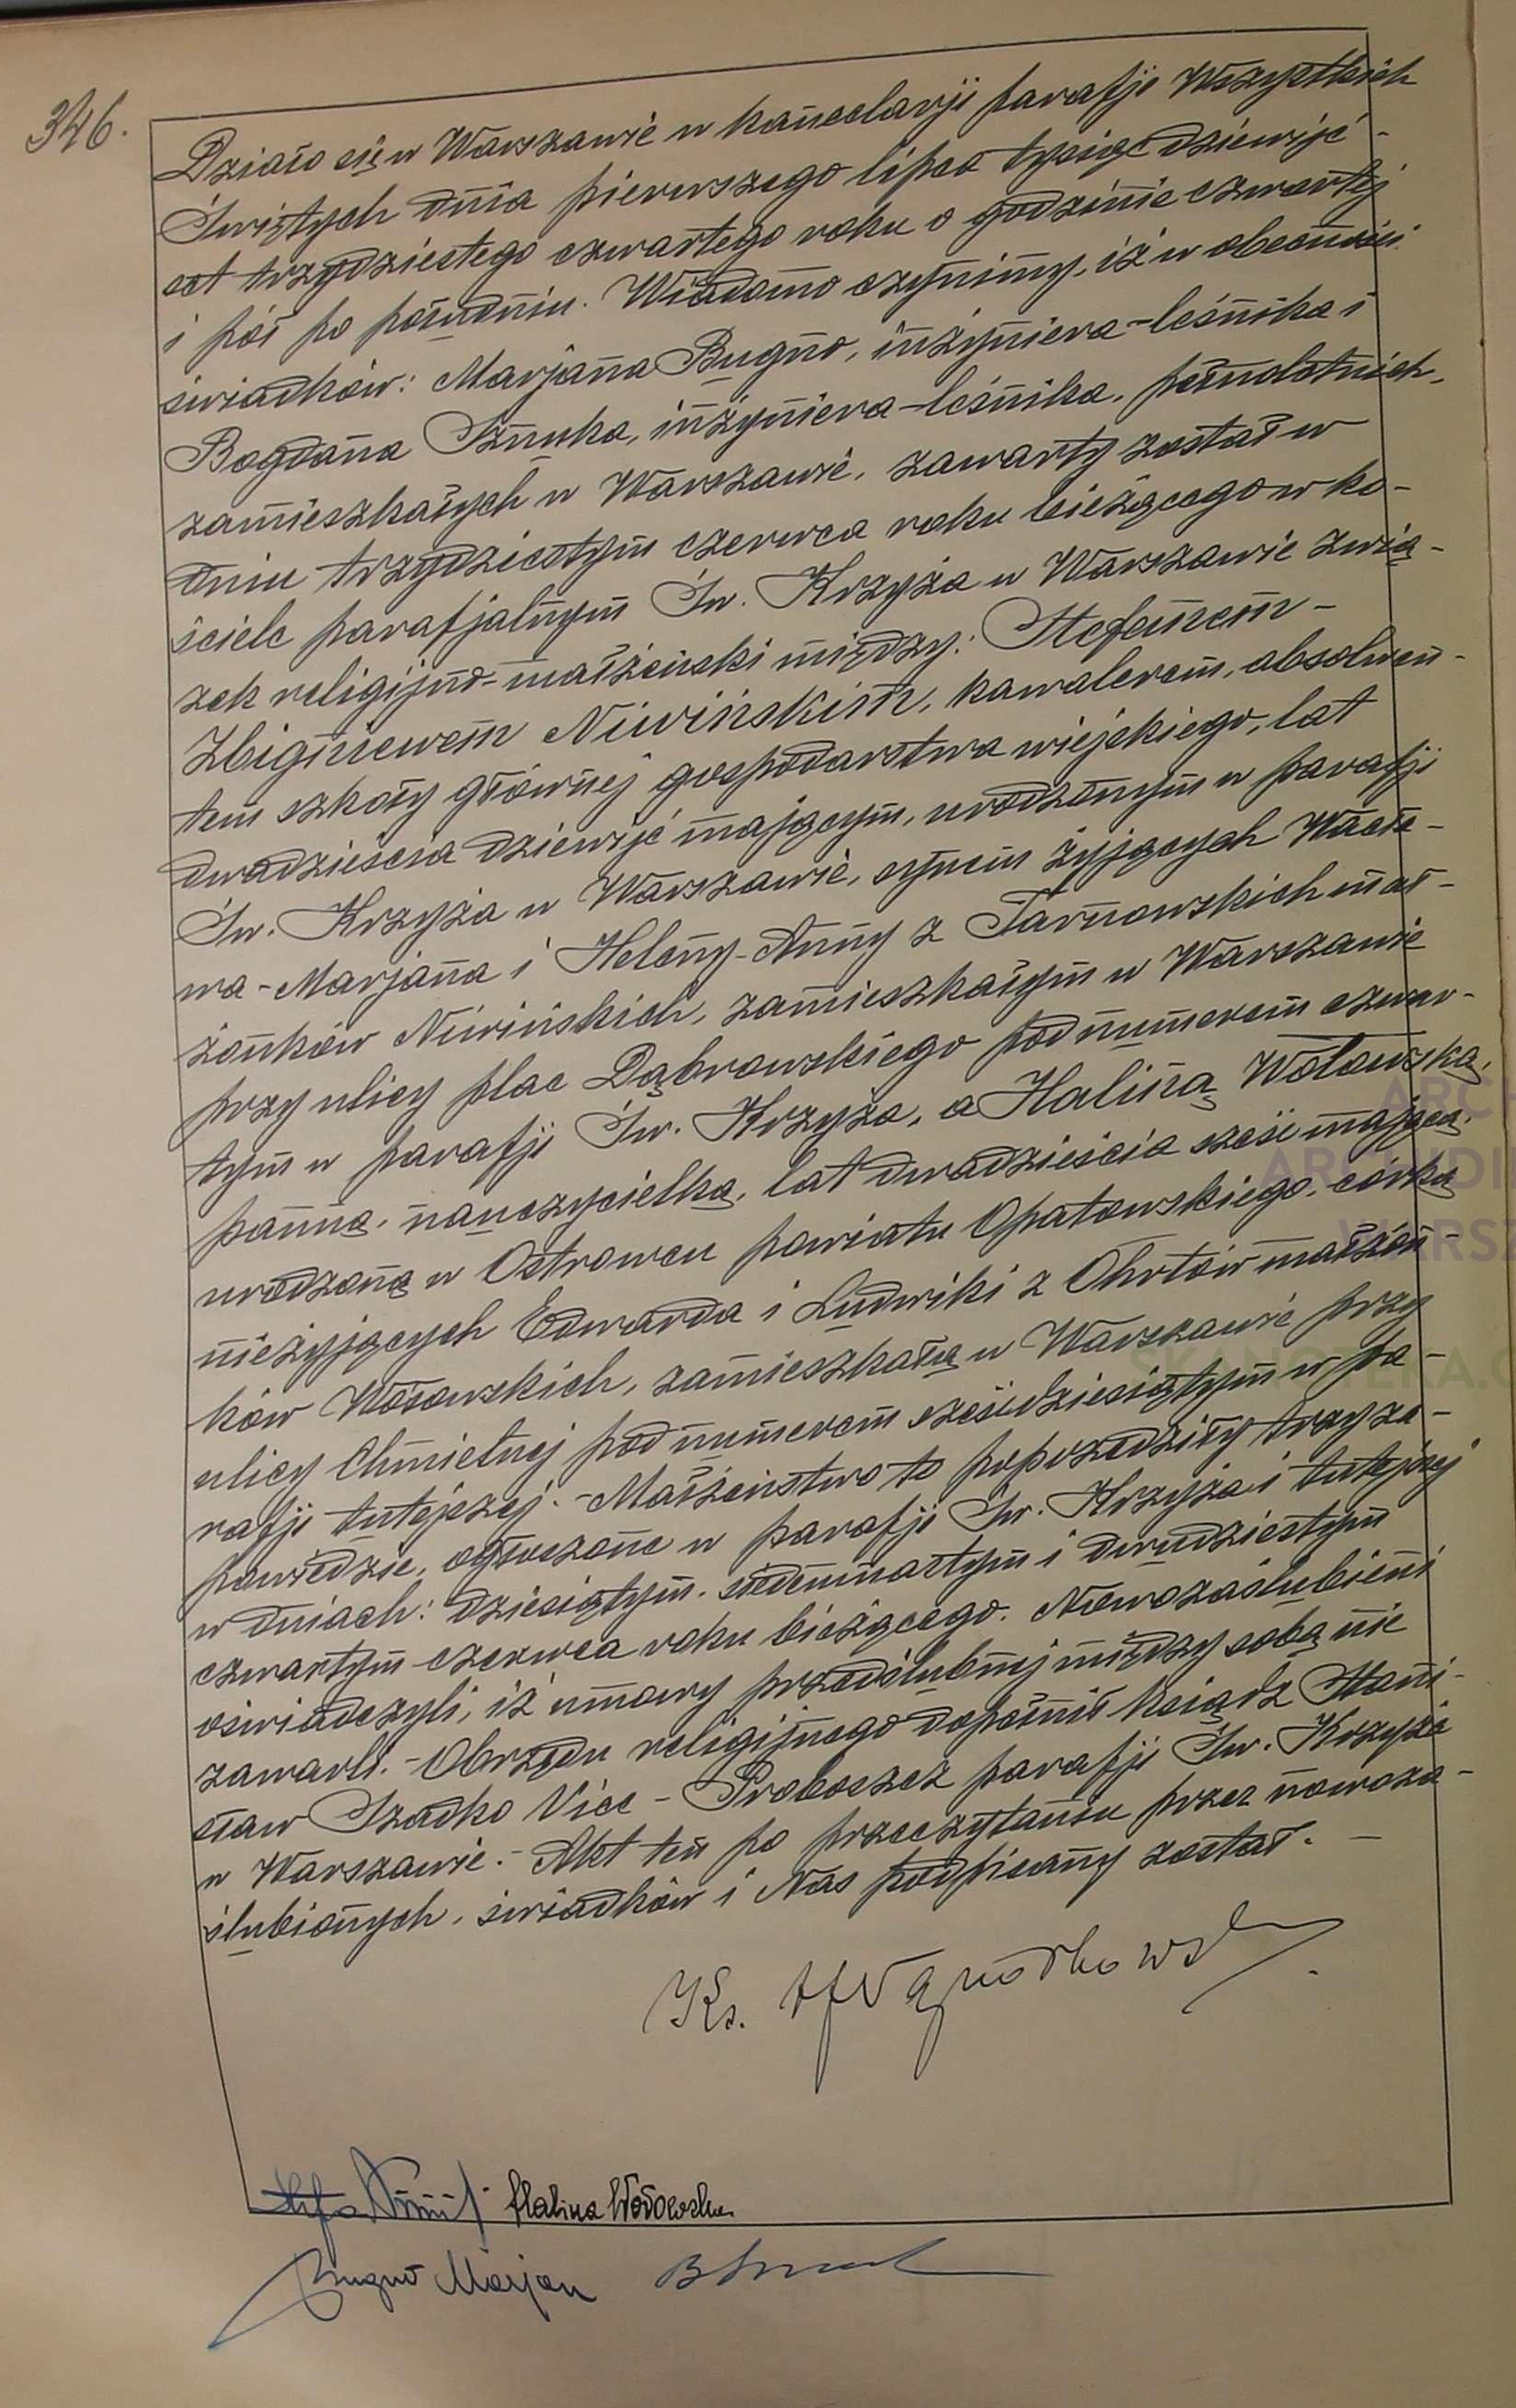 346.
Działo się w Warszawie w kancelarji parafji Wszystkich
Świętych dnia pierwszego lipca tysiąc dziewięć-
set trzydziestego czwartego roku o godzinie czwartej
i pół po południu. Wiadomo czynimy, iż w obecności
świadków: Marjana Bugno, inżyniera-leśnika i
Bogdana Sznuka, inżyniera-leśnika, pełnoletnich,
zamieszkałych w Warszawie, zawarty został w
dniu trzydziestym czerwca roku bieżącego w ko-
ściele parafjalnym Św. Krzyża w Warszawie zwią-
zek religijno-małżeński między: Stefanem-
Zbigniewem Niwińskim, kawalerem, absolwen-
tem szkoły głównej gospodarstwa wiejskiego, lat
dwadzieścia dziewięć mającym, urodzonym w parafji
Św. Krzyża w Warszawie, synem żyjących Wacła-
wa-Marjana i Heleny-Anny z Tarnowskich mał-
żonków Niwińskich, zamieszkałym w Warszawie
przy ulicy plac Dąbrowskiego pod numerem czwar-
tym w parafji Św. Krzyża, a Haliną Wołowską,
panną, nauczycielką, lat dwadzieścia sześć mającą,
urodzoną w Ostrowcu powiatu Opatowskiego, córką
nieżyjących Edwarda i Ludwiki z Ohrtów małżon-
ków Wołowskich, zamieszkałą w Warszawie przy
ulicy Chmielnej pod numerem sześćdziesiątym w pa-
rafji tutejszej. - Małżeństwo to poprzedziły trzy za-
powiedzie, ogłoszone w parafji Św. Krzyża i tutejszej
w dniach: dziesiątym, siedemnastym i dwudziestym
czwartym czerwca roku bieżącego. Nowozaślubieni
oświadczyli, iż umowy przedślubnej między sobą nie
zawarli. - Obrzędu religijnego dopełnił ksiądz Stani-
sław Szadko Vice - Proboszcz parafji Św. Krzyża
w Warszawie. - Akt ten po przeczytaniu przez nowoza-
ślubionych, świadków i Nas podpisany został. -
Ks.
Halina Wołowska
Bugno Marjan